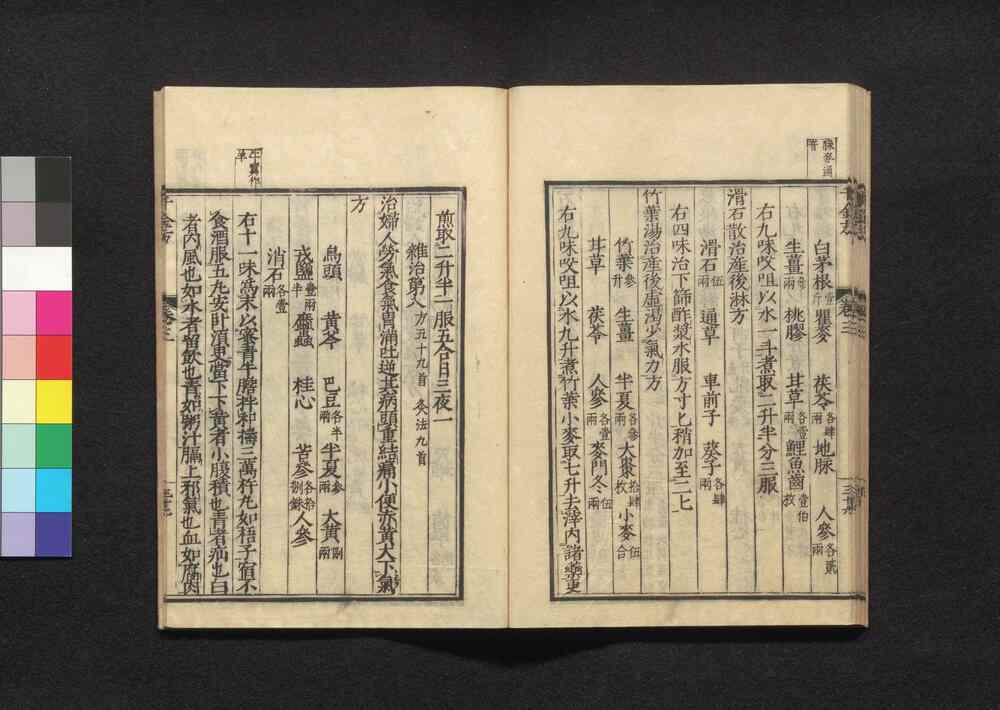 白茅根壹斤 瞿麥 茯苓各肆兩 地脉 人參各貳兩
生薑 桃膠 甘草各壹兩 鯉魚齒壹伯枚
右九味㕮咀以水一斗煮取二升半分三服
滑石散治産後淋方
滑石伍兩 通草 車前子 葵子各肆兩
右四味治下篩酢漿水服方寸匕稍加至二匕
竹葉湯治産後虚渴少氣力方
竹葉參升 生薑 半夏各參兩 大棗拾肆枚 小麥伍合
甘草 茯苓 人參各壹兩 麥門冬伍兩
右九味㕮咀以水九升煮竹葉小麥取七升去滓内諸藥更
煎取二升半一服五合日三夜一
雜治第八方五十九首 灸法九首
治婦人勞氣食氣胃滿吐逆其病頭重結痛小便赤黄大下氣
方
烏頭 黄芩 巴豆各半兩 半夏參兩 大黄捌兩
戎鹽壹兩半 䗪蟲 桂心 苦參各拾捌銖 人參
消石各壹兩
右十一味爲末以蜜青牛膽拌和擣三萬杵丸如梧子宿不
食酒服五丸安卧須臾當下下黄者小腹積也青者疝也白
者内風也如水者留飲也青如粥汁膈上邪氣也血如腐肉